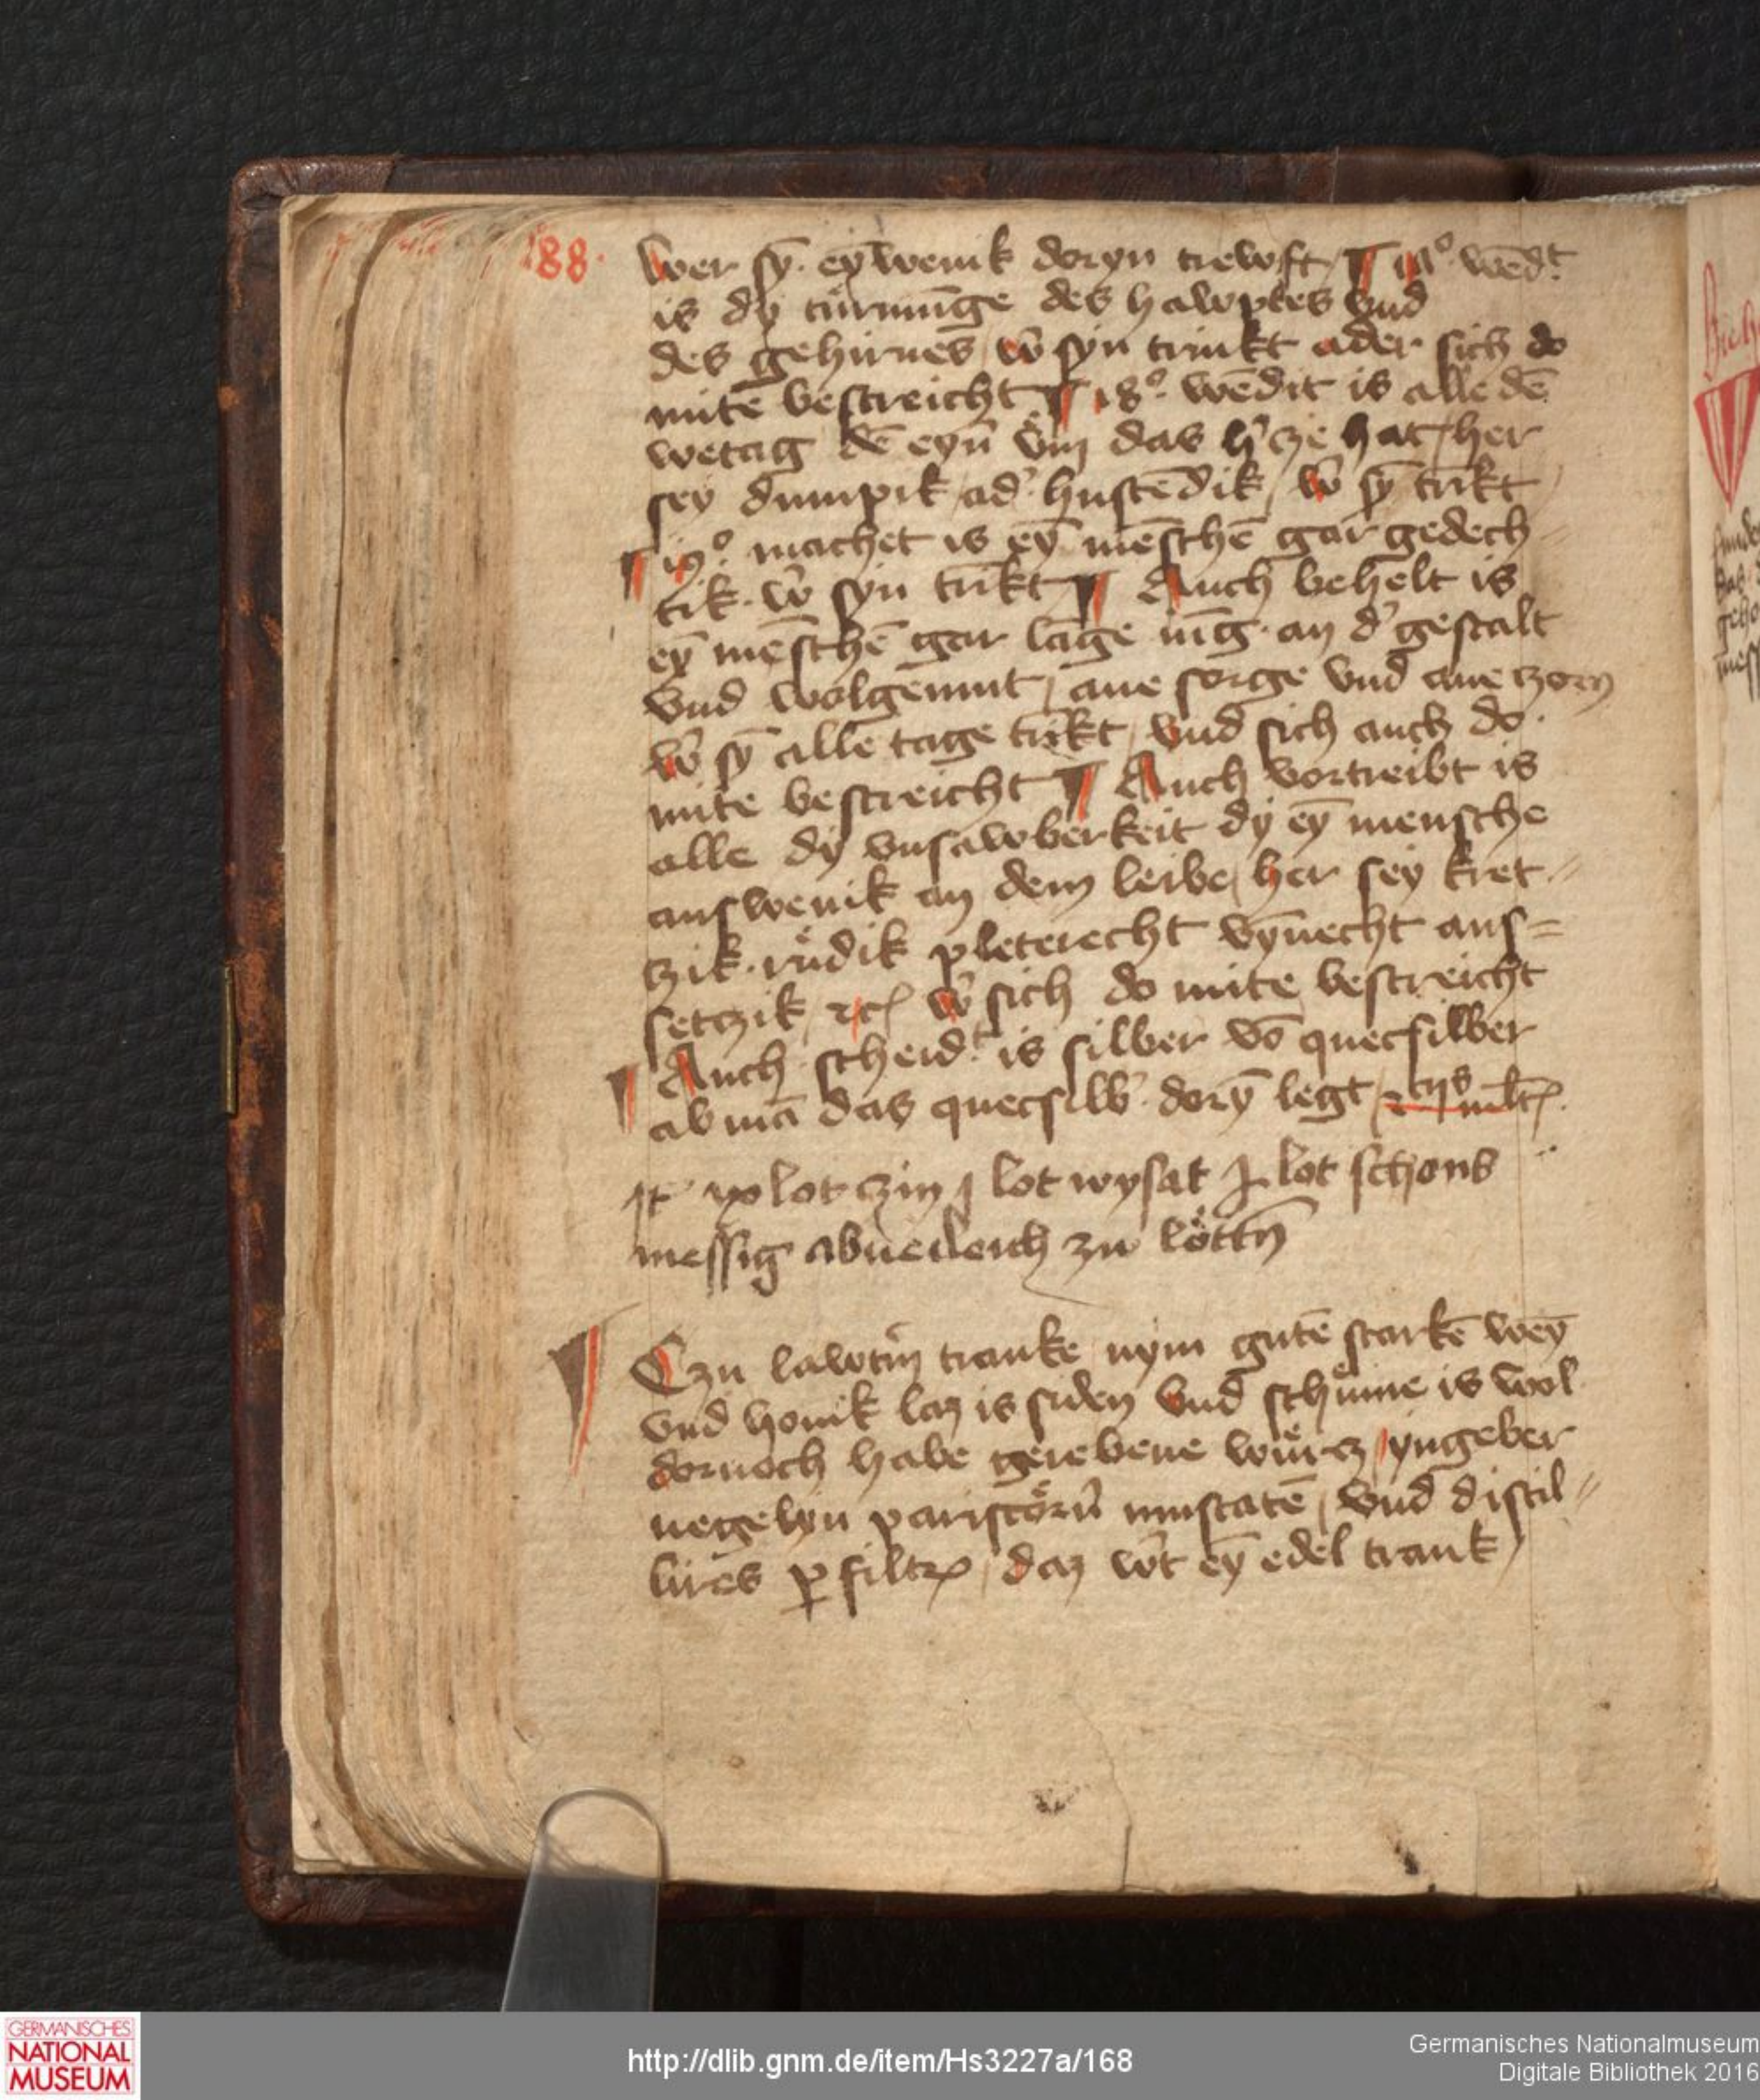 88.
wer sȳ. eȳ wenik doryn trewft ¶ 17° wēdt
is dy tuͤrmūge des hawptes vnd
des gehirnes / w̄ syn trinkt ader sich do
mite bestreicht ¶ 18° wēdit is alle dē
wetag dē eyn vm̄ das h'cze hat / her
sey dumpik / ad' hustēdik / w̄ sȳ tr̄ikt
¶ 19° machet is eȳ mēschē gar gedech
tik. w̄ syn tr̄ikt ¶ Auch behelt is
eȳ mēschē gar lāge iūg. an d' gestalt
vnd wolgemut / ane sorge vnd ane zorn
w̄ sȳ alle tage tr̄ikt / vnd sich auch do
mite bestreicht ¶ Auch vortreibt is
alle dy vnsawberkeit dy eȳ mensche
auswenik an dem leibe / her sey kret
czik. ruͤdik pleterecht vȳnecht aus=
setczik / etc w̄ sich do mite bestreicht
¶ Auch scheidt is silber vō quecsilber
ab mā das quecsilb' dorȳ legt /
It lot czin j lot wysat lot schons
messig
¶ Czu lawtm̄ tranke / nym gutē starkē weȳ
vnd honik laz is siden vnd schuͤme is wol
dornoch habe gerebene wuͤrcz / yngeber
negelyn pariskoͤrn̄ muscatē / vnd distil=
lires ꝑ filtrꝫ / daz w̄t eȳ edel trank
GERMANISCHES
NATIONAL
MUSEUM
http://dlib.gnm.de/item/Hs3227a/168
Germanisches Nationalmuseum
Digitale Bibliothek 2016